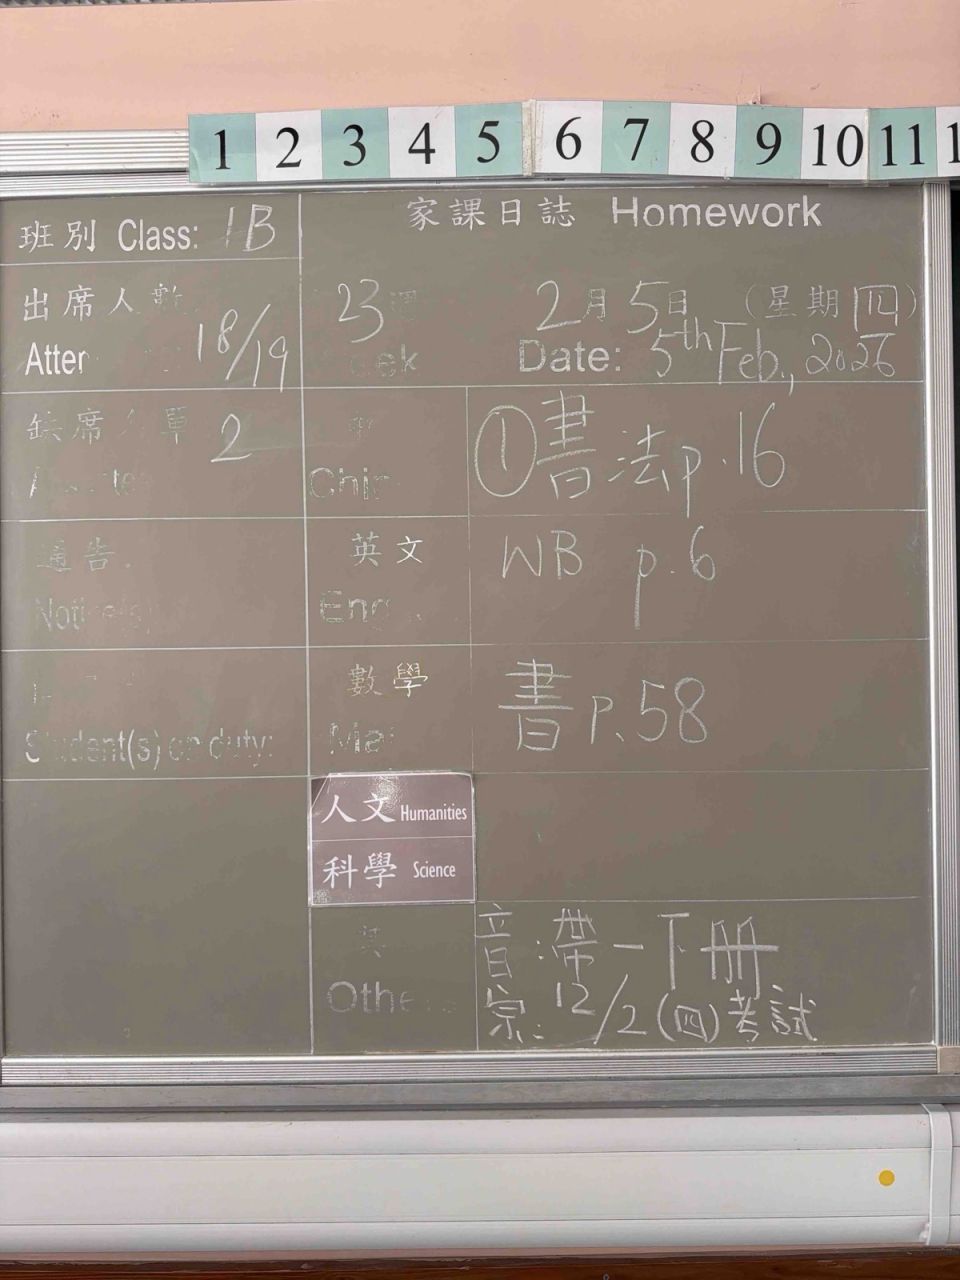 1 2 3 4 5 6 7 8 9 10 11 1
班別 Class: 1B
家課日誌 Homework
出席人數
Atter 18/19
23週
eek
2月5日 (星期四)
Date: 5th Feb., 2026
缺席名單 2
Chin
①書法p.16
通告
Notice(s)
英文
Eng
WB p.6
Student(s) on duty:
數學
Mat
書 P.58
人文 Humanities
科學 Science
其
Othe
音:帶一下冊
宗:12/2(四)考試